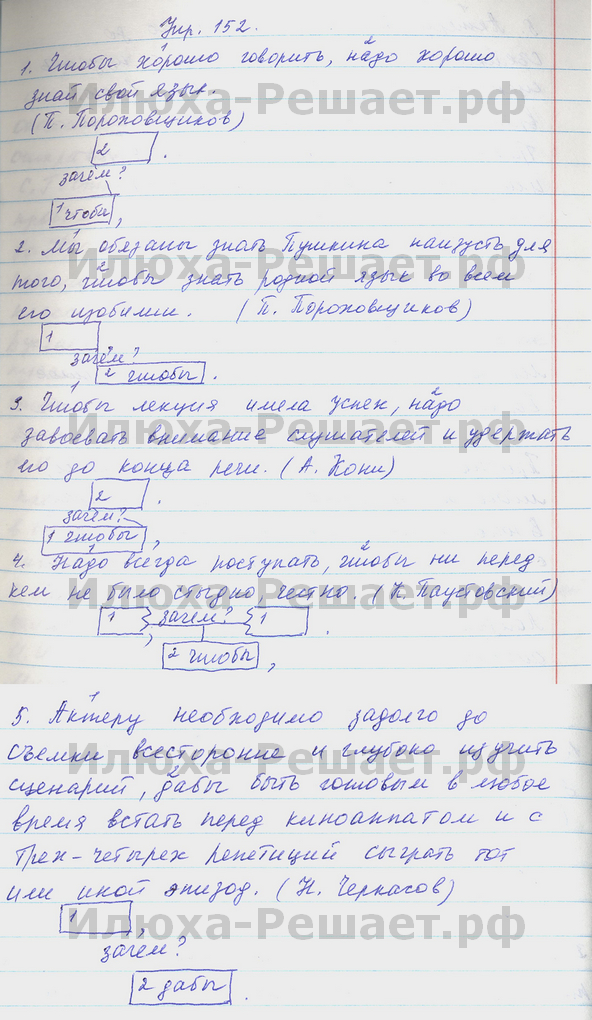 Упр. 152.
1. Чтобы хорошо говорить, надо хорошо
знай свой язык.
(П. Пороховщиков)
2 .
зачем?
1 чтобы ,
2. Мы обязаны знать Пушкина наизусть для
того, чтобы знать родной язык во всем
его изобилии. (П. Пороховщиков)
1
зачем?
2 чтобы .
3. Чтобы лекция имела успех, надо
завоевать внимание слушателей и удержать
его до конца речи. (А. Кони)
2 .
зачем?
1 чтобы ,
4. Надо всегда поступать, чтобы ни перед
кем не было стыдно, честно. (К. Паустовский)
1 , зачем? 1 .
2 чтобы ,
5. Актеру необходимо задолго до
съемки всесторонне и глубоко изучить
сценарий, дабы быть готовым в любое
время встать перед киноаппатом и с
трех-четырех репетиций сыграть тот
или иной эпизод. (Н. Черкасов)
1 ,
зачем?
2 дабы .
Илюха-Решает.рф
Илюха-Решает.рф
Илюха-Решает.рф
Илюха-Решает.рф
Илюха-Решает.рф
Илюха-Решает.рф